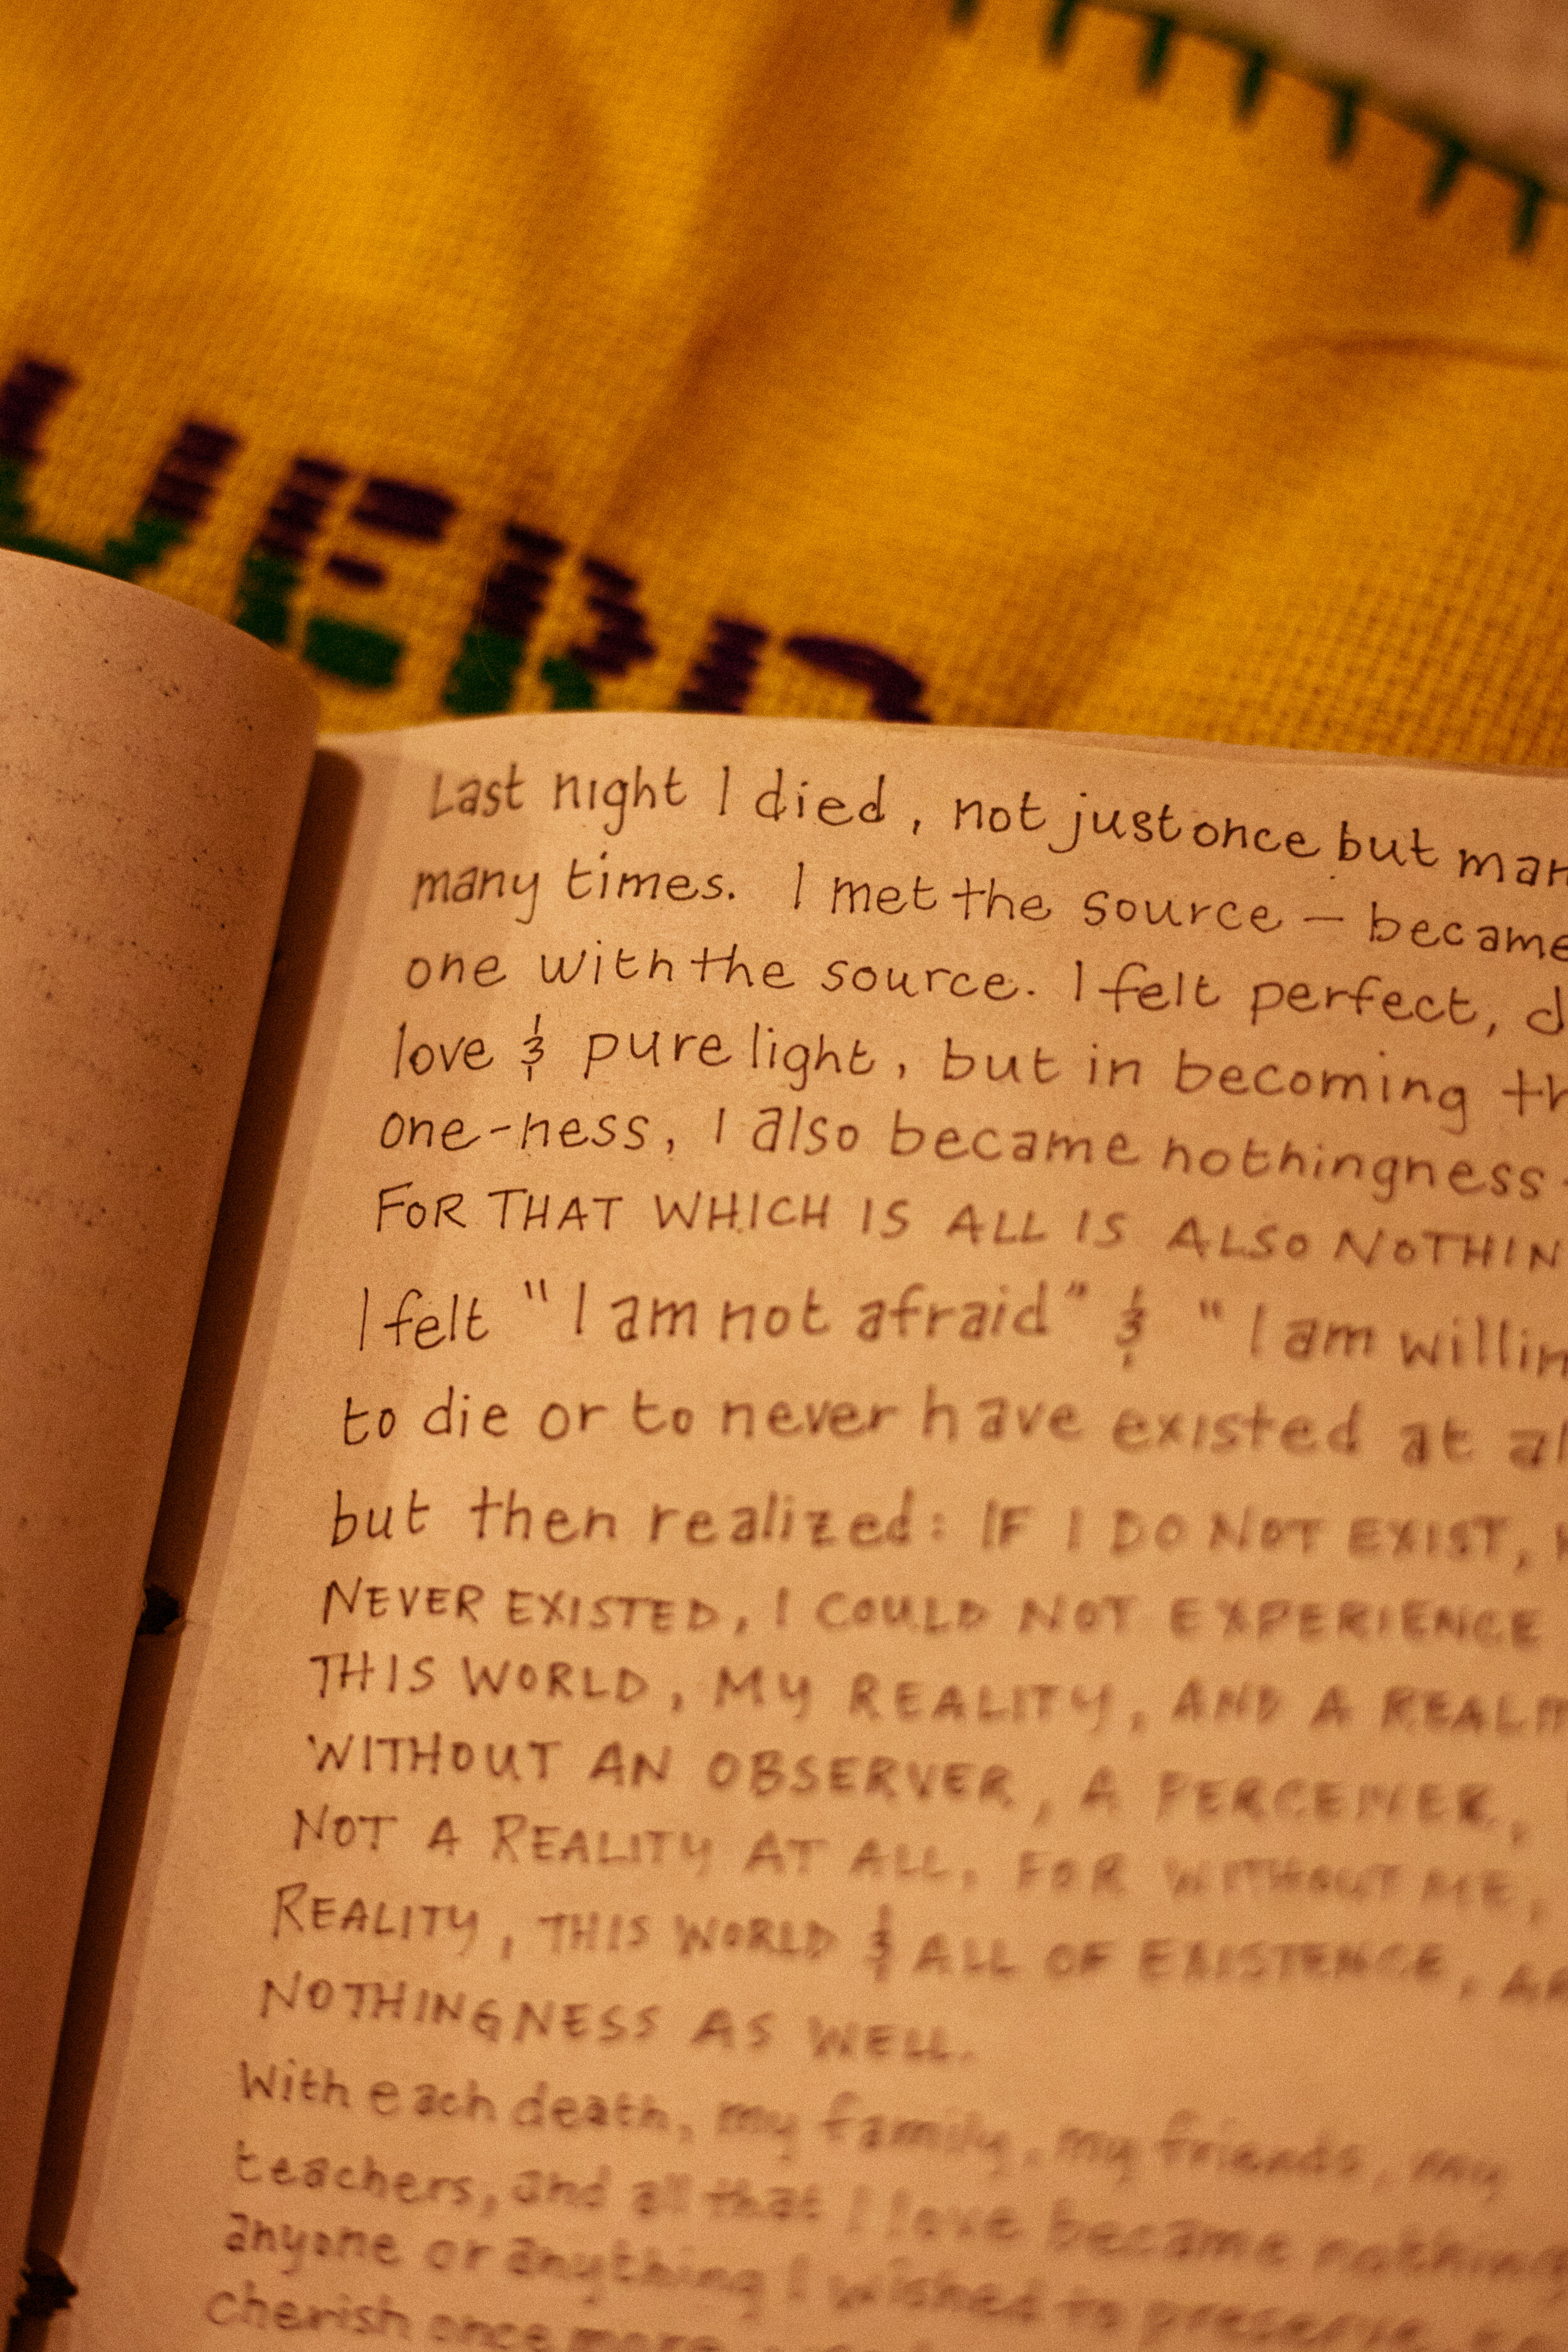 Last night I died, not just once but man
many times. I met the source – became
one with the source. I felt perfect, d
love & pure light, but in becoming th
one-ness, I also became nothingness -
FOR THAT WHICH IS ALL IS ALSO NOTHIN
I felt "I am not afraid" & "I am willin
to die or to never have existed at al
but then realized: IF I DO NOT EXIST,
NEVER EXISTED, I COULD NOT EXPERIENCE
THIS WORLD, MY REALITY, AND A REALIT
WITHOUT AN OBSERVER, A PERCEIVER,
NOT A REALITY AT ALL. FOR WITHOUT ME,
REALITY, THIS WORLD & ALL OF EXISTENCE, AR
NOTHINGNESS AS WELL.
With each death, my family, my friends, my
teachers, and all that I love became nothing
anyone or anything I wished to preserve,
cherish once more